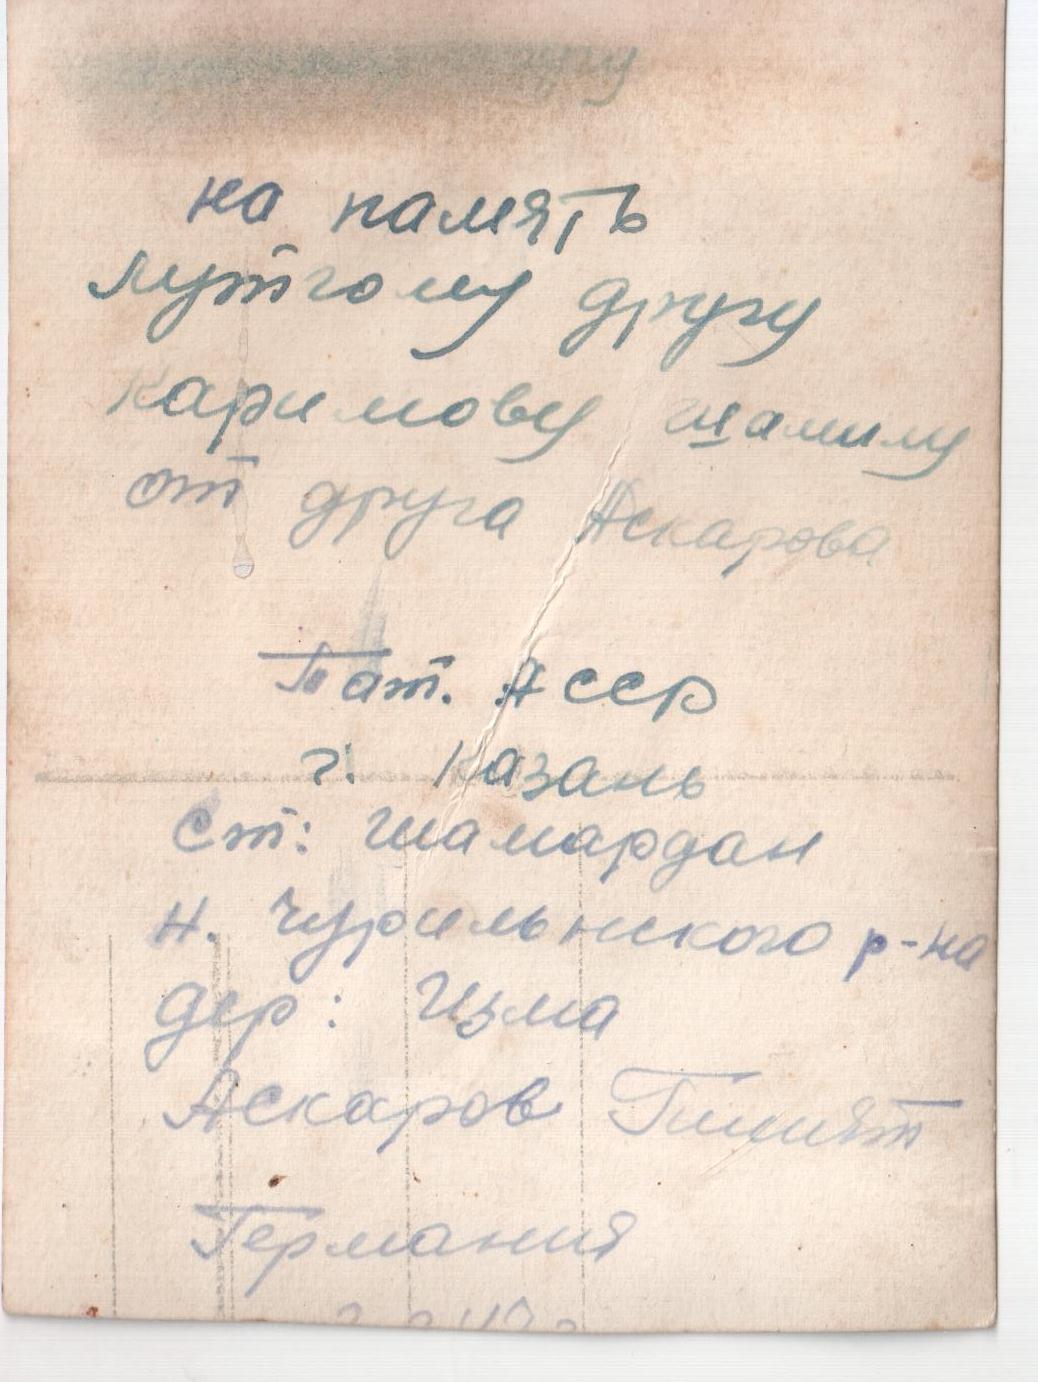 на память
лутгому другу
Каримову шамилу
от друга Аскарова
Тат. АССР
г: Казань
ст: шамардан
н. Чурильнского р-на
дер: Изма
Аскаров
Германия